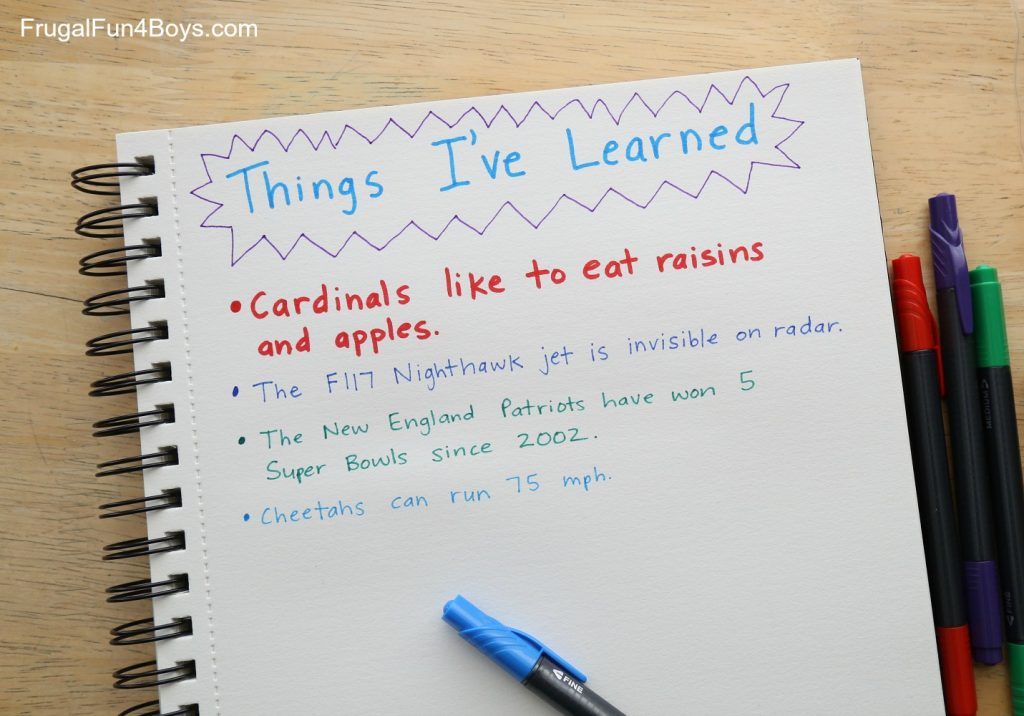 FrugalFun4Boys.com
Things I've Learned
• Cardinals like to eat raisins
and apples.
• The F117 Nighthawk jet is invisible on radar.
• The New England Patriots have won 5
Super Bowls since 2002.
• Cheetahs can run 75 mph.
FINE
MEDIUM
FINE
FINE